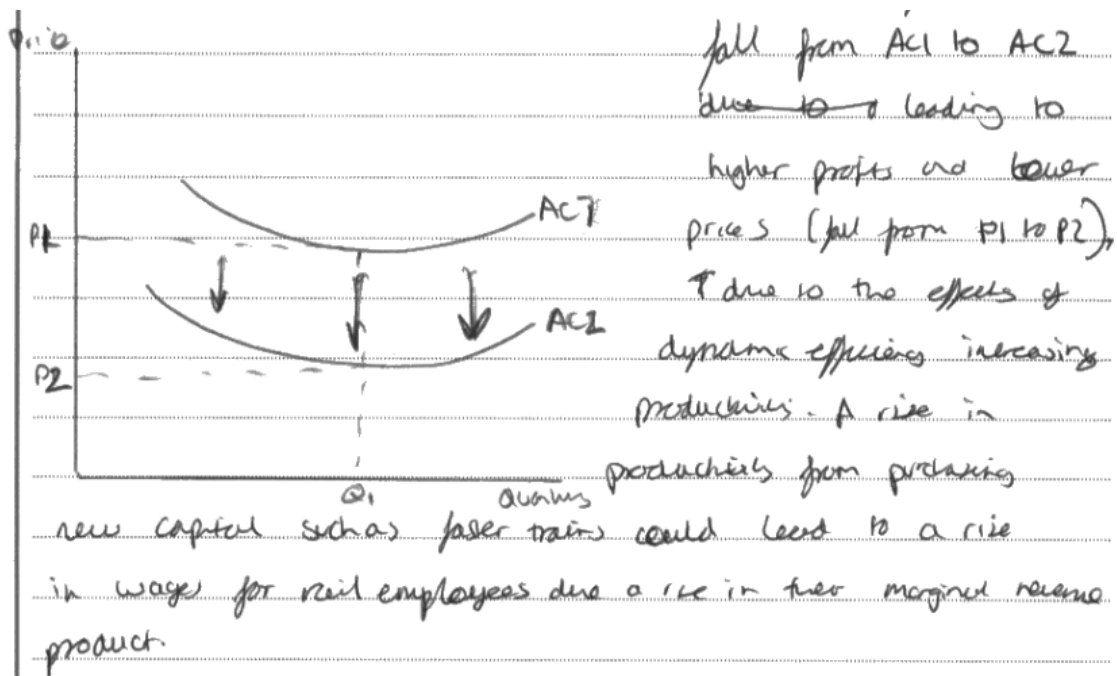 Price
fall from AC1 to AC2
due to leading to
higher profits and lower
AC1
P1
prices (fall from P1 to P2),
↑ due to the effects of
AC2
dynamic efficiency increasing
P2
productivity. A rise in
productivity from purchasing
Q1 Quantity
new capital such as faser trains could lead to a rise
in wages for rail employees due a rise in their marginal revenue
product.